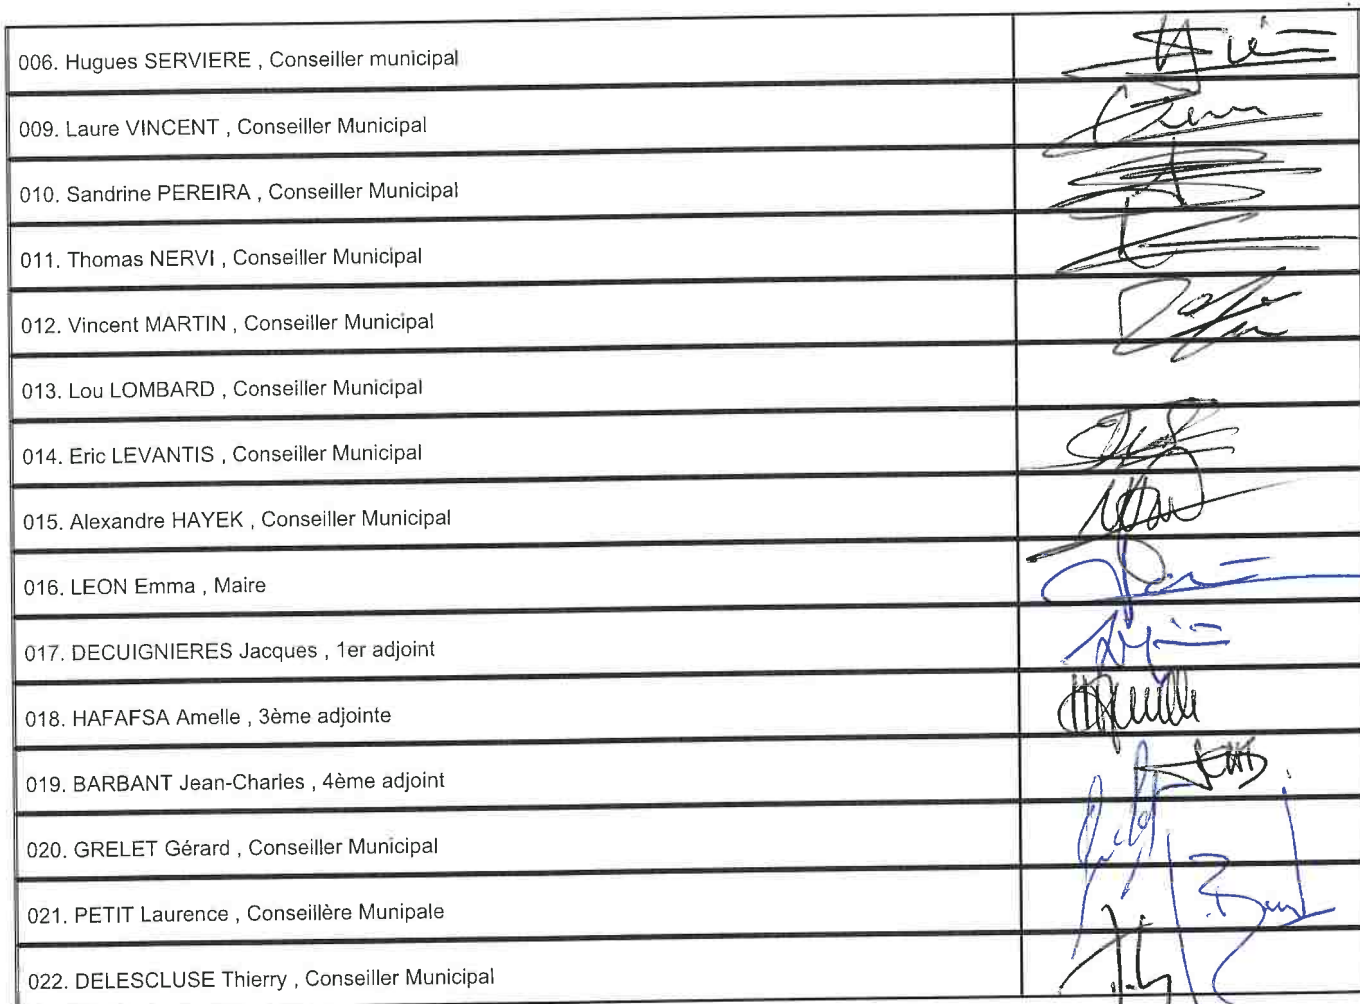 006. Hugues SERVIERE , Conseiller municipal
009. Laure VINCENT , Conseiller Municipal
010. Sandrine PEREIRA , Conseiller Municipal
011. Thomas NERVI , Conseiller Municipal
012. Vincent MARTIN , Conseiller Municipal
013. Lou LOMBARD , Conseiller Municipal
014. Eric LEVANTIS , Conseiller Municipal
015. Alexandre HAYEK , Conseiller Municipal
016. LEON Emma , Maire
017. DECUIGNIERES Jacques , 1er adjoint
018. HAFAFSA Amelle , 3ème adjointe
019. BARBANT Jean-Charles , 4ème adjoint
020. GRELET Gérard , Conseiller Municipal
021. PETIT Laurence , Conseillère Munipale
022. DELESCLUSE Thierry , Conseiller Municipal